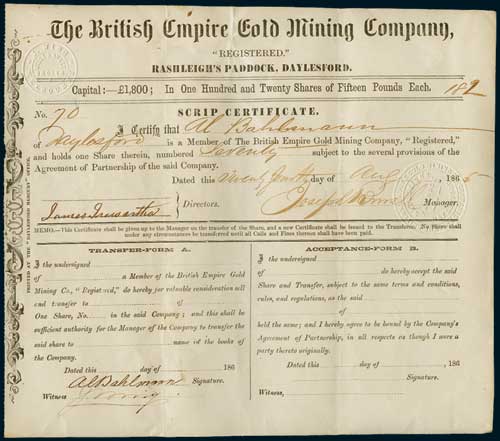 The British Empire Gold Mining Company,
"REGISTERED."
RASHLEIGH'S PADDOCK, DAYLESFORD.
Capital:—£1,800; In One Hundred and Twenty Shares of Fifteen Pounds Each.
SCRIP CERTIFICATE.
No. 70
I Certify that Al Bahlmann
of Daylesford is a Member of The British Empire Gold Mining Company, "Registered,"
and holds one Share therein, numbered Seventy subject to the several provisions of the
Agreement of Partnership of the said Company.
Dated this day of Aug 186
James Trewartha Directors. Joseph Manager.
MEMO.—This Certificate shall be given up to the Manager on the transfer of the Share, and a new Certificate shall be issued to the Transferee. No Share shall
under any circumstances be transferred until all Calls and Fines thereon shall have been paid.
TRANSFER-FORM A.
I the undersigned
of a Member of the British Empire Gold
Mining Co., "Registered," do hereby for valuable consideration sell
and transfer to of
One Share, No. in the said Company; and this shall be
sufficient authority for the Manager of the Company to transfer the
said share to name of the books of
the Company.
Dated this day of 186
Al Bahlmann Signature.
Witness
ACCEPTANCE-FORM B.
I the undersigned
of do hereby accept the said
Share and Transfer, subject to the same terms and conditions,
rules, and regulations, as the said
of
held the same; and I hereby agree to be bound by the Company's
Agreement of Partnership, in all respects as though I were a
party thereto originally.
Dated this day of 186
Signature.
Witness,